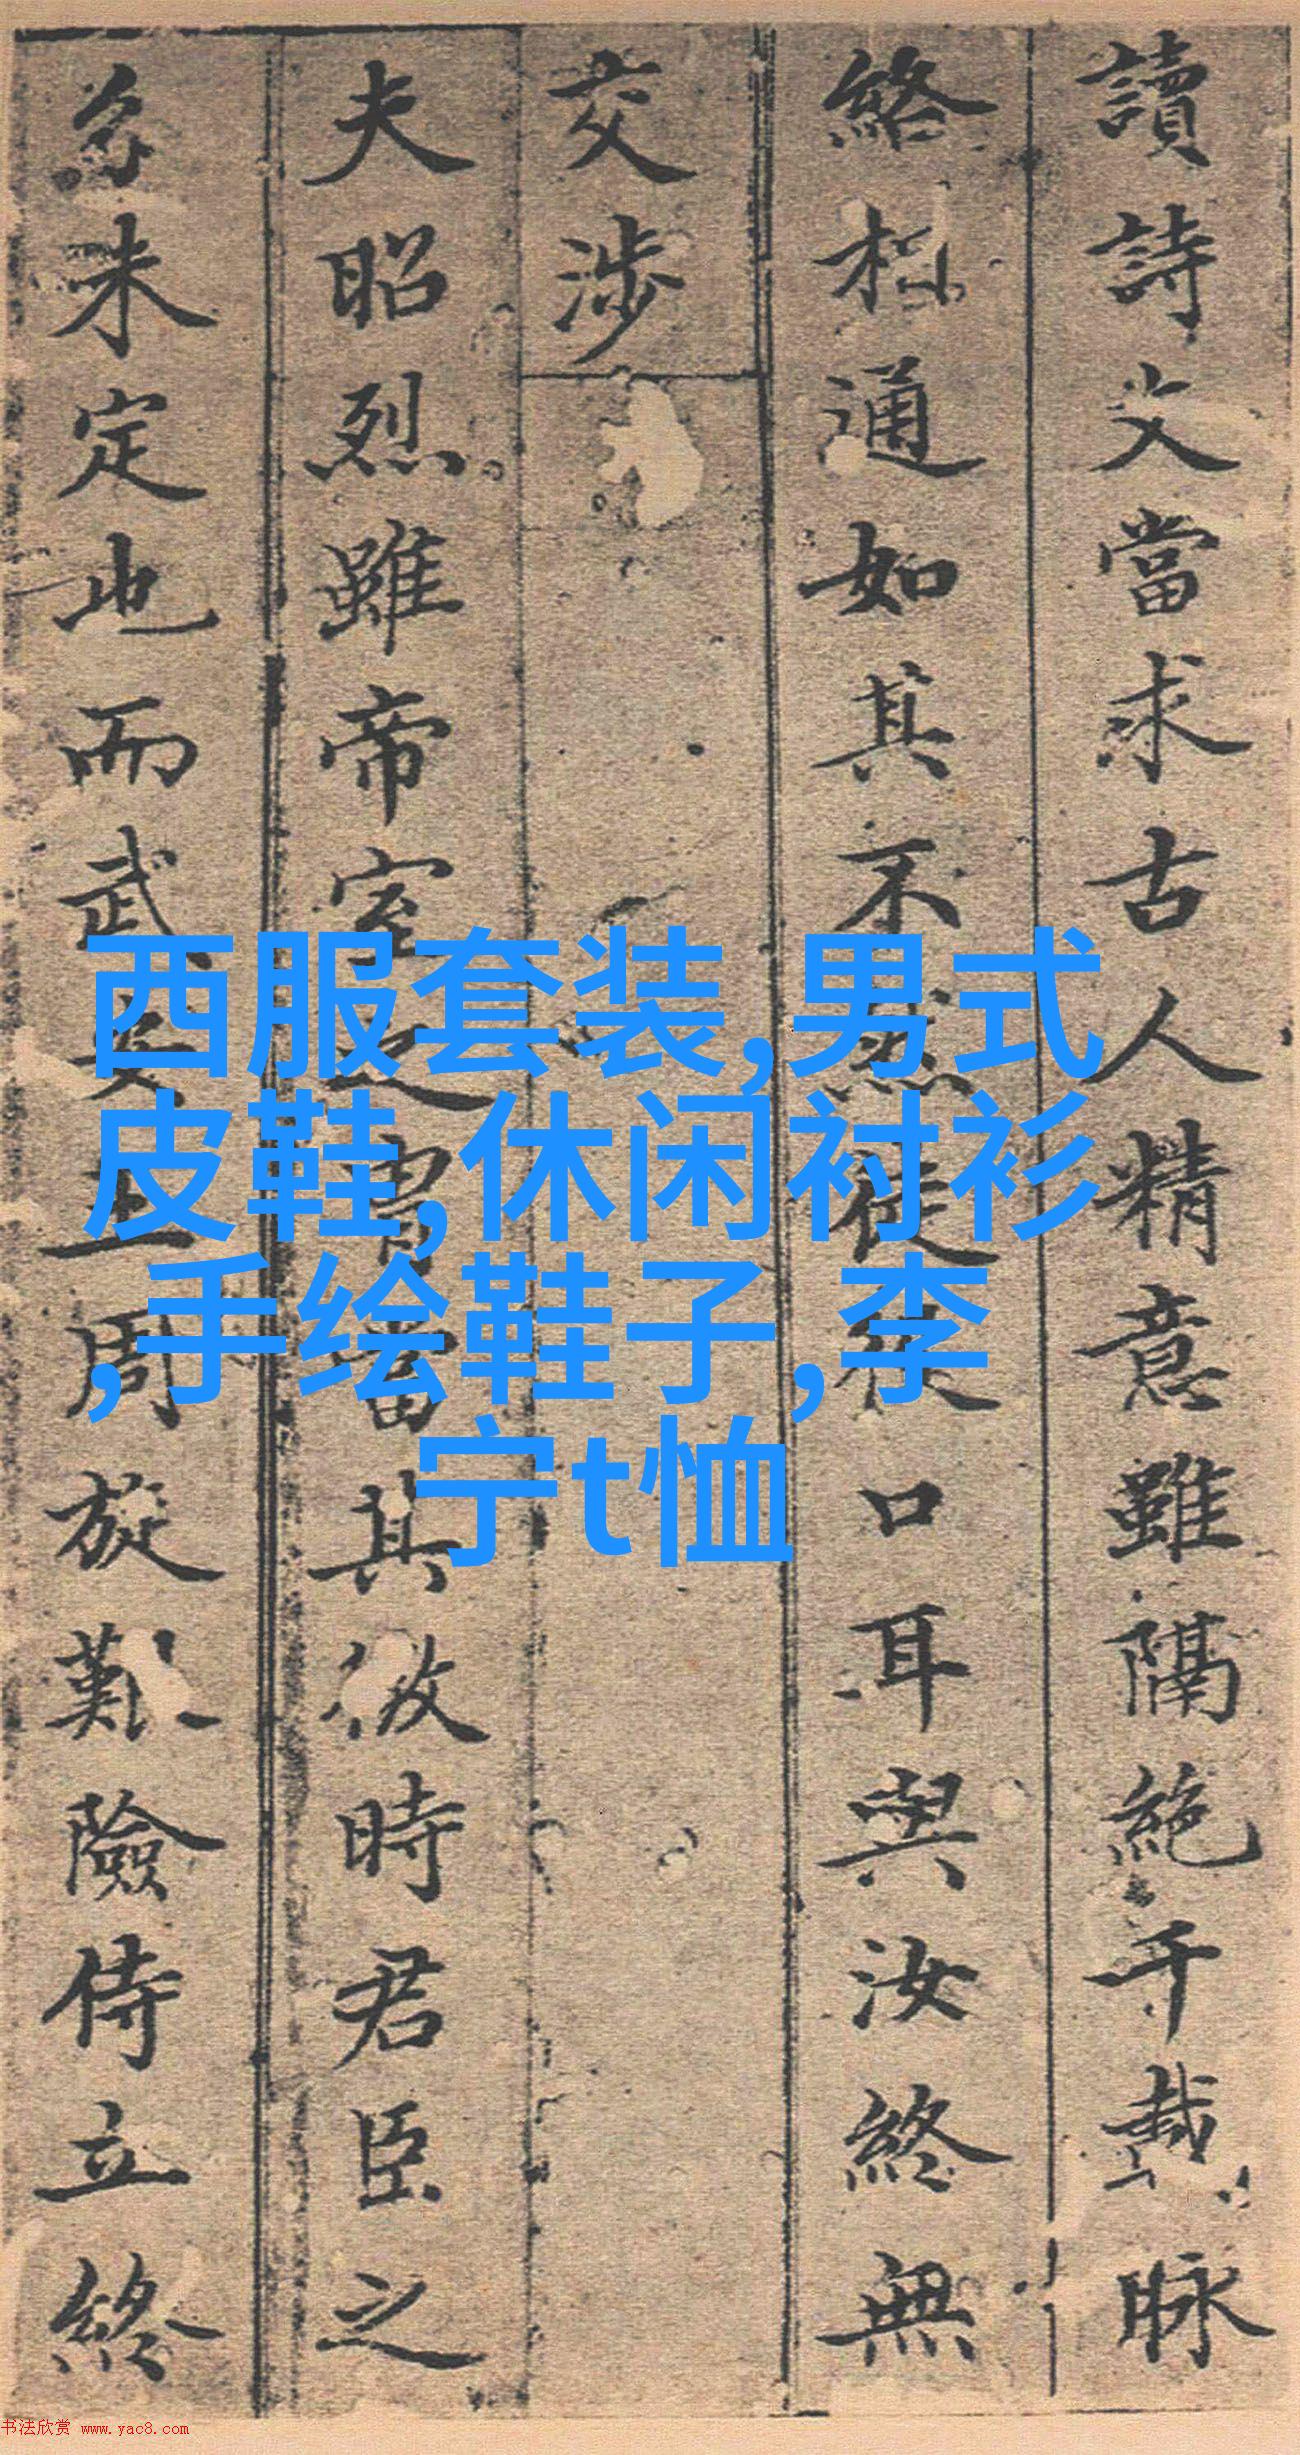 讀詩文當求古人精意雖隔絶千載脉
絡相通如其不然徒從口耳與汝終無
交涉
夫昭烈雖帝室之胄當其彼時君臣之
分未定也而武周旋難險侍立終
西服套装,男式
皮鞋,休闲衬衫
,手绘鞋子,李
宁t恤
书法欣赏 www.yac8.com